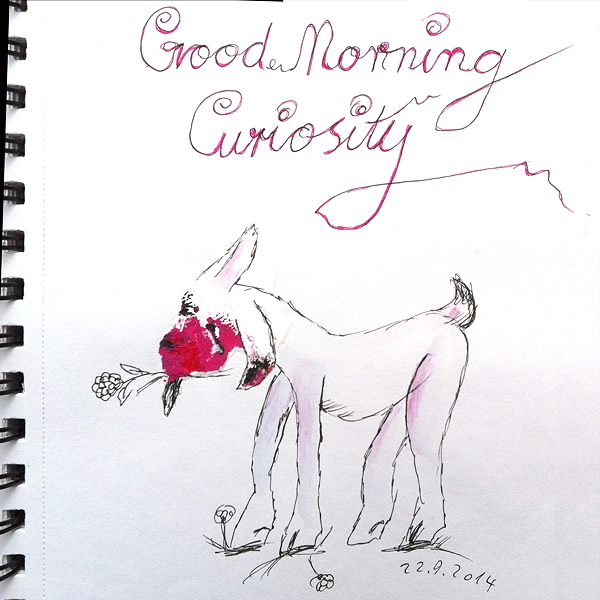 Good Morning
Curiosity
22.9.2014